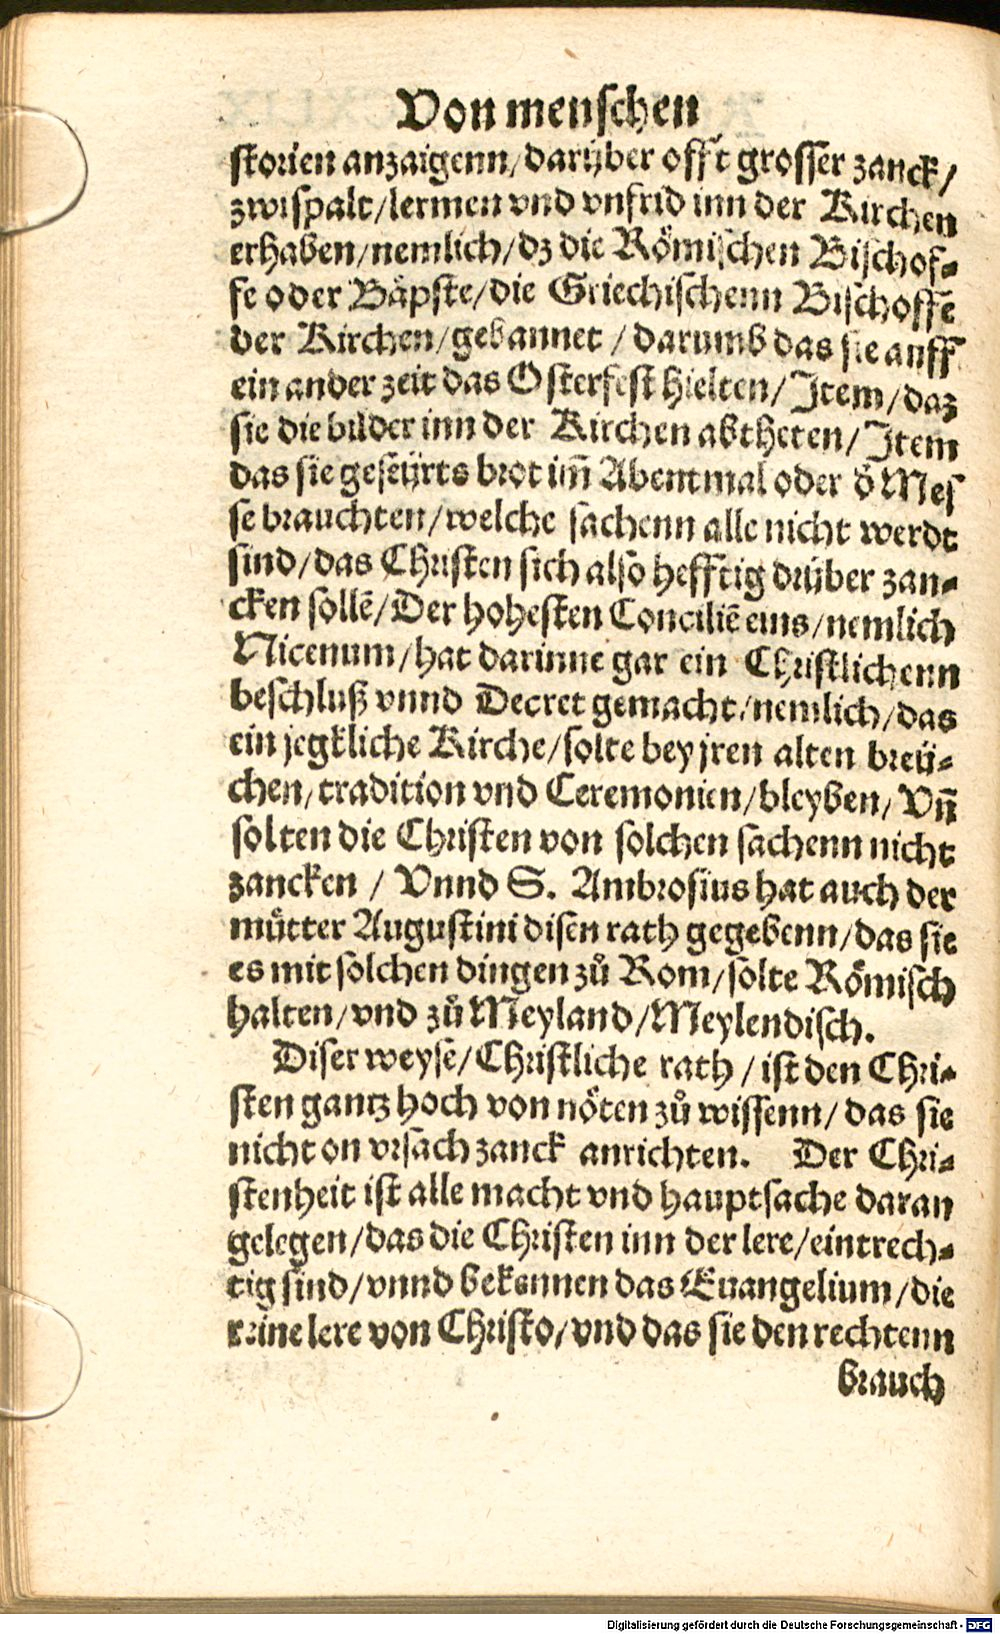 Von menschen
storien anzaigenn/darüber offt grosser zanck/
zwispalt/lermen vnd vnfrid inn der Kirchen
erhaben/nemlich/dz die Römischen Bischof-
fe oder Bäpste/die Griechischenn Bischoffē
der Kirchen/gebannet / darumb das sie auff
ein ander zeit das Osterfest hielten/Item/daz
sie die bilder inn der Kirchen abtheten/Item
das sie geseürts brot im̄ Abentmal oder d̕ Mes
se brauchten/welche sachenn alle nicht werdt
sind/das Christen sich also hefftig drüber zan-
cken sollē/Der hohesten Conciliē eins/nemlich
Nicenum/hat darinne gar ein Christlichenn
beschluß vnnd Decret gemacht/nemlich/das
ein jegkliche Kirche/solte bey jren alten breü-
chen/tradition vnd Ceremonien/bleyben/Vñ
solten die Christen von solchen sachenn nicht
zancken / Vnnd S. Ambrosius hat auch der
můtter Augustini disen rath gegebenn/das sie
es mit solchen dingen zů Rom/solte Römisch
halten/vnd zů Meyland/Meylendisch.
Diser weyse/Christliche rath / ist den Chri-
sten gantz hoch von nöten zů wissenn/ das sie
nicht on vrsach zanck anrichten. Der Chri-
stenheit ist alle macht vnd hauptsache daran
gelegen/das die Christen inn der lere/eintrech-
tig sind/vnnd bekennen das Euangelium/die
reine lere von Christo/vnd das sie den rechtenn
brauch
Digitalisierung gefördert durch die Deutsche Forschungsgemeinschaft - DFG